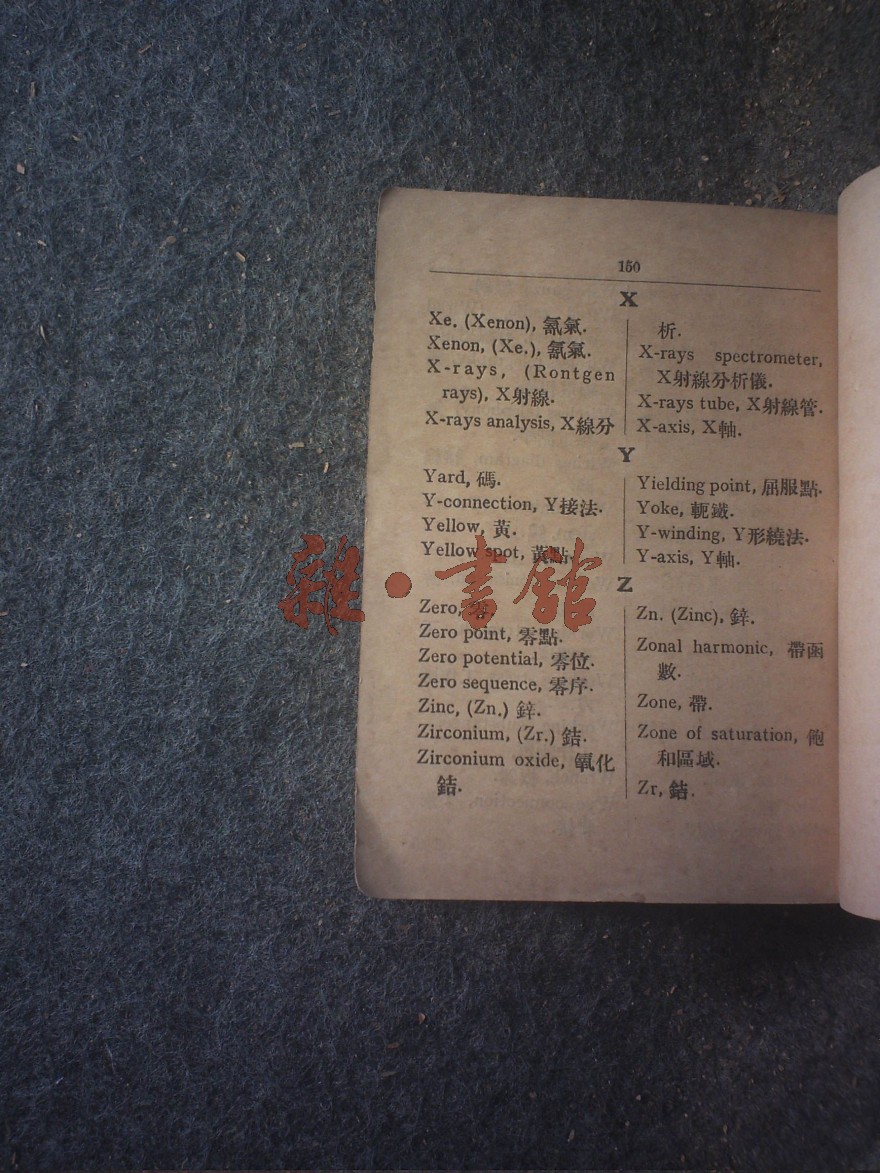 150
X
Xe. (Xenon), 氙氣.
Xenon, (Xe.), 氙氣.
X-rays, (Rontgen
rays), X射線.
X-rays analysis, X線分
析.
X-rays spectrometer,
X射線分析儀.
X-rays tube, X射線管.
X-axis, X軸.
Y
Yard, 碼.
Y-connection, Y接法.
Yellow, 黃.
Yellow spot, 黃點.
Yielding point, 屈服點.
Yoke, 軛鐵.
Y-winding, Y形繞法.
Y-axis, Y軸.
Z
Zero, 零.
Zero point, 零點.
Zero potential, 零位.
Zero sequence, 零序.
Zinc, (Zn.) 鋅.
Zirconium, (Zr.) 鋯.
Zirconium oxide, 氧化
鋯.
Zn. (Zinc), 鋅.
Zonal harmonic, 帶函
數.
Zone, 帶.
Zone of saturation, 飽
和區域.
Zr, 鋯.
雜·書館